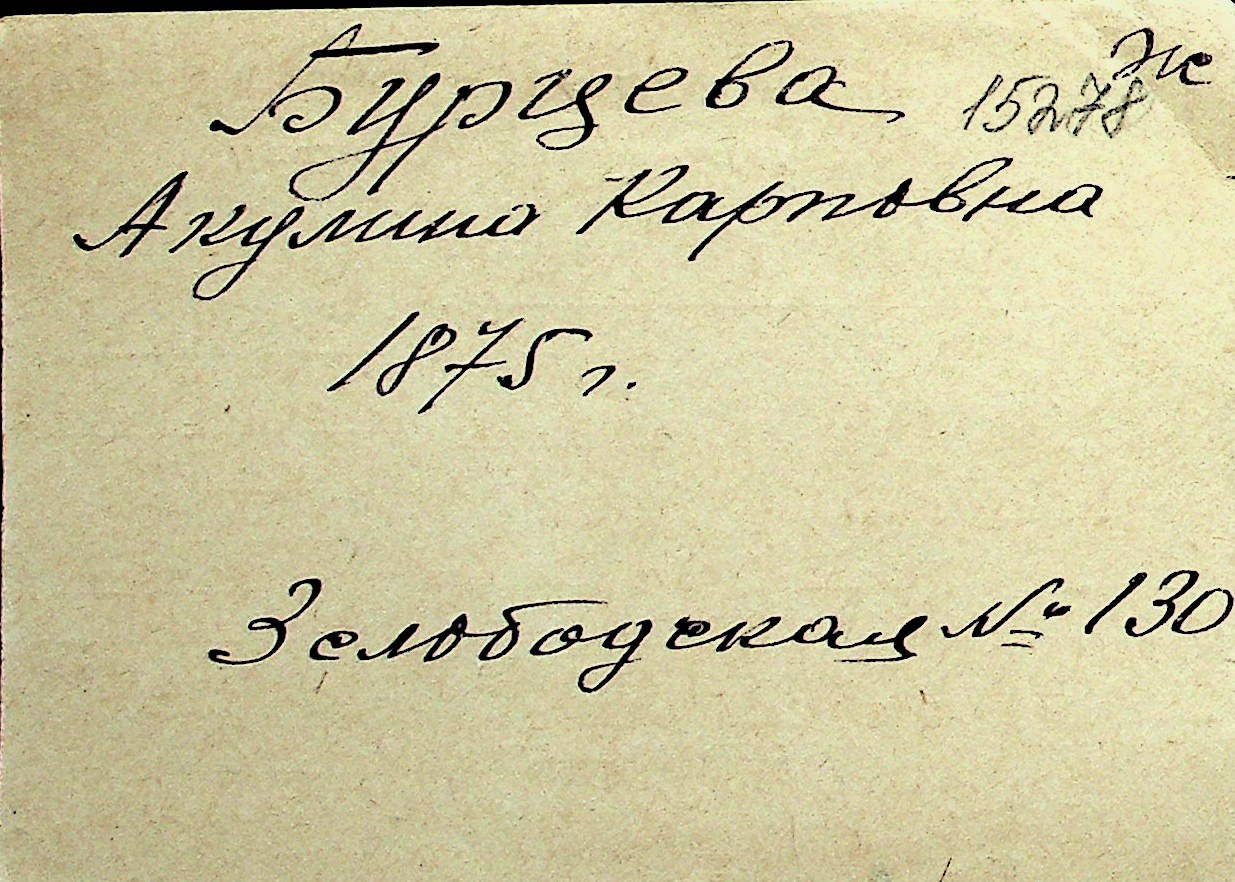 Бурцева ж
15278
Акулина Карповна
1875 г.
3 слободская № 130